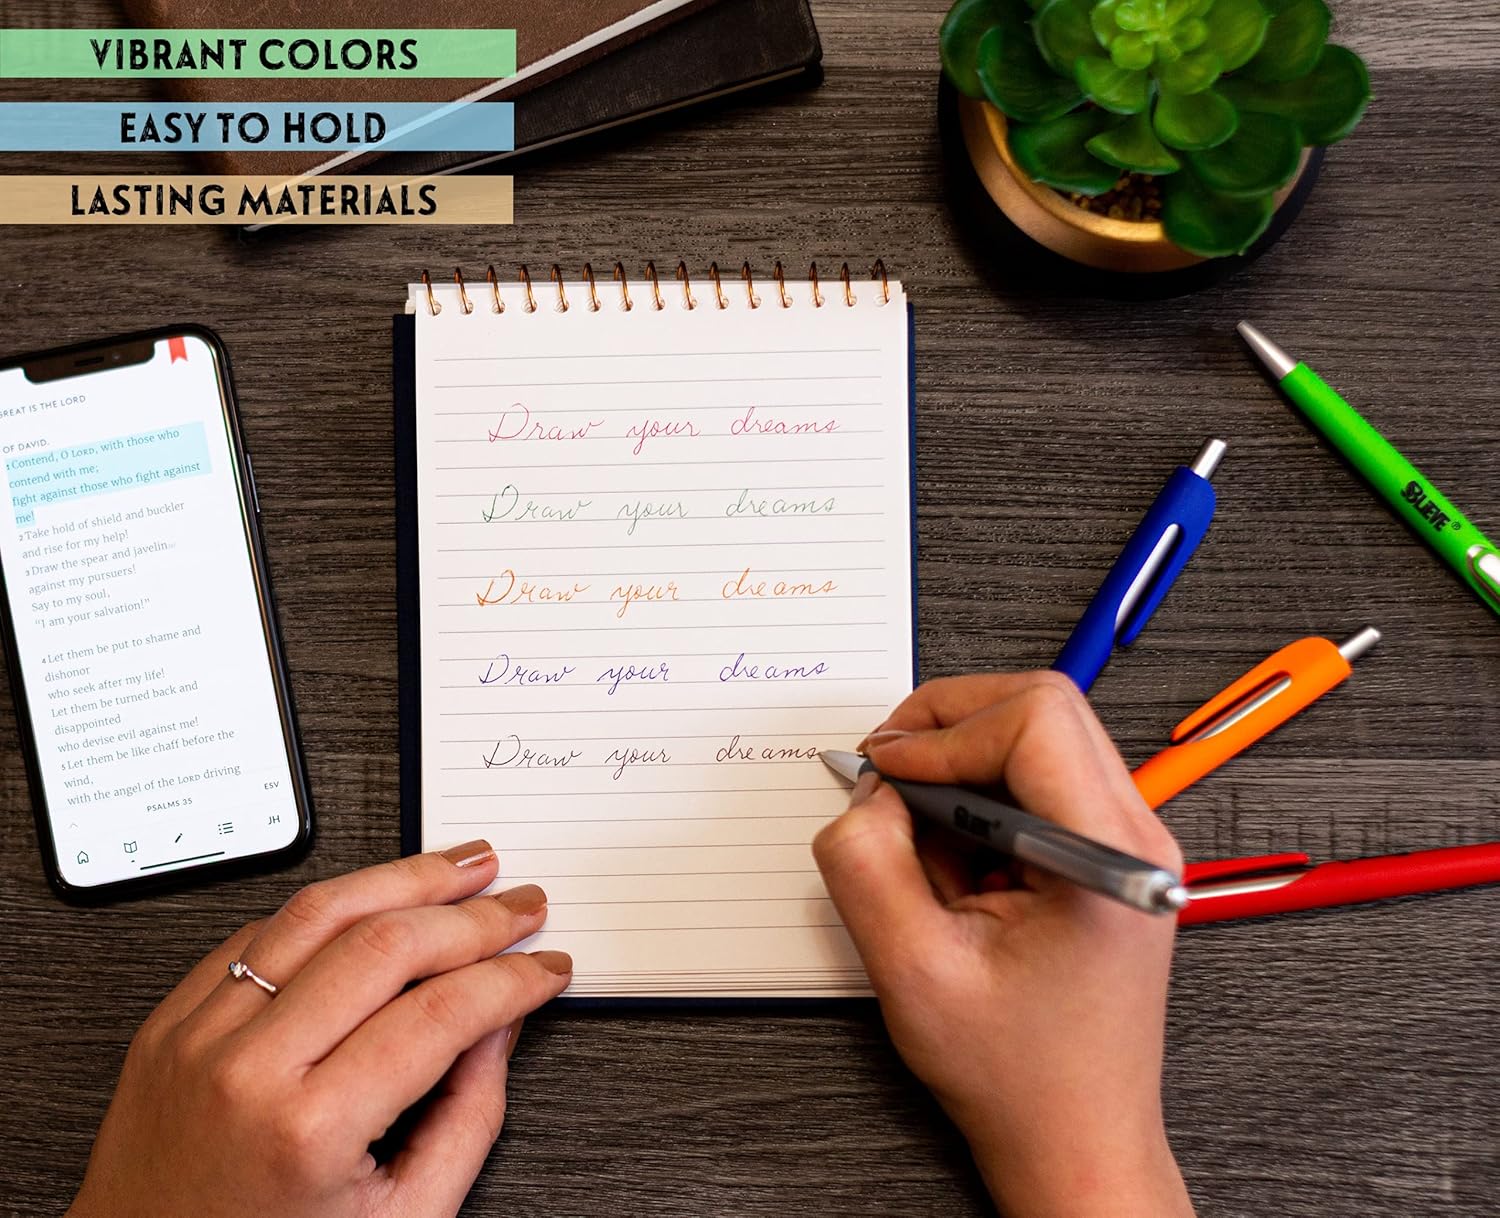 VIBRANT COLORS
EASY TO HOLD
LASTING MATERIALS
GREAT IS THE LORD
OF DAVID.
1 Contend, O LORD, with those who
contend with me;
fight against those who fight against
me!
2 Take hold of shield and buckler
and rise for my help!
3 Draw the spear and javelin
against my pursuers!
Say to my soul,
"I am your salvation!"
4 Let them be put to shame and
dishonor
who seek after my life!
Let them be turned back and
disappointed
who devise evil against me!
5 Let them be like chaff before the
wind,
with the angel of the LORD driving
PSALMS 35
ESV
JH
Draw your dreams
Draw your dreams
Draw your dreams
Draw your dreams
Draw your dreams
SBLIEVE®